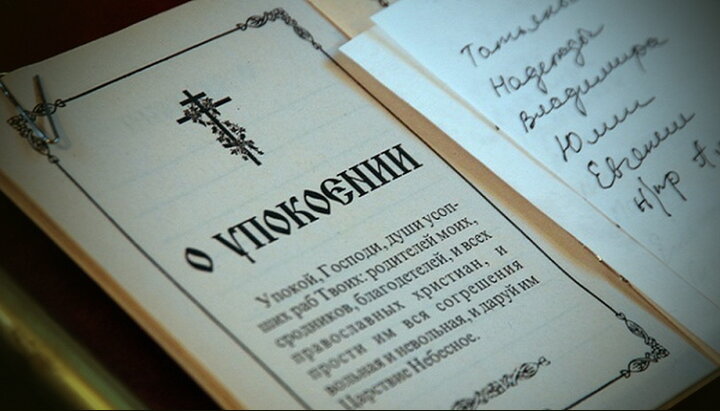 О УПОКОЕНИИ
Упокой, Господи, души усоп-
ших раб Твоих: родителей моих,
сродников, благодетелей, и всех
православных христиан, и
прости им вся согрешения
вольная и невольная, и даруй им
Царствие Небесное.
Татьяны
Надежды
Владимира
Юлии
Евгении
н/пр